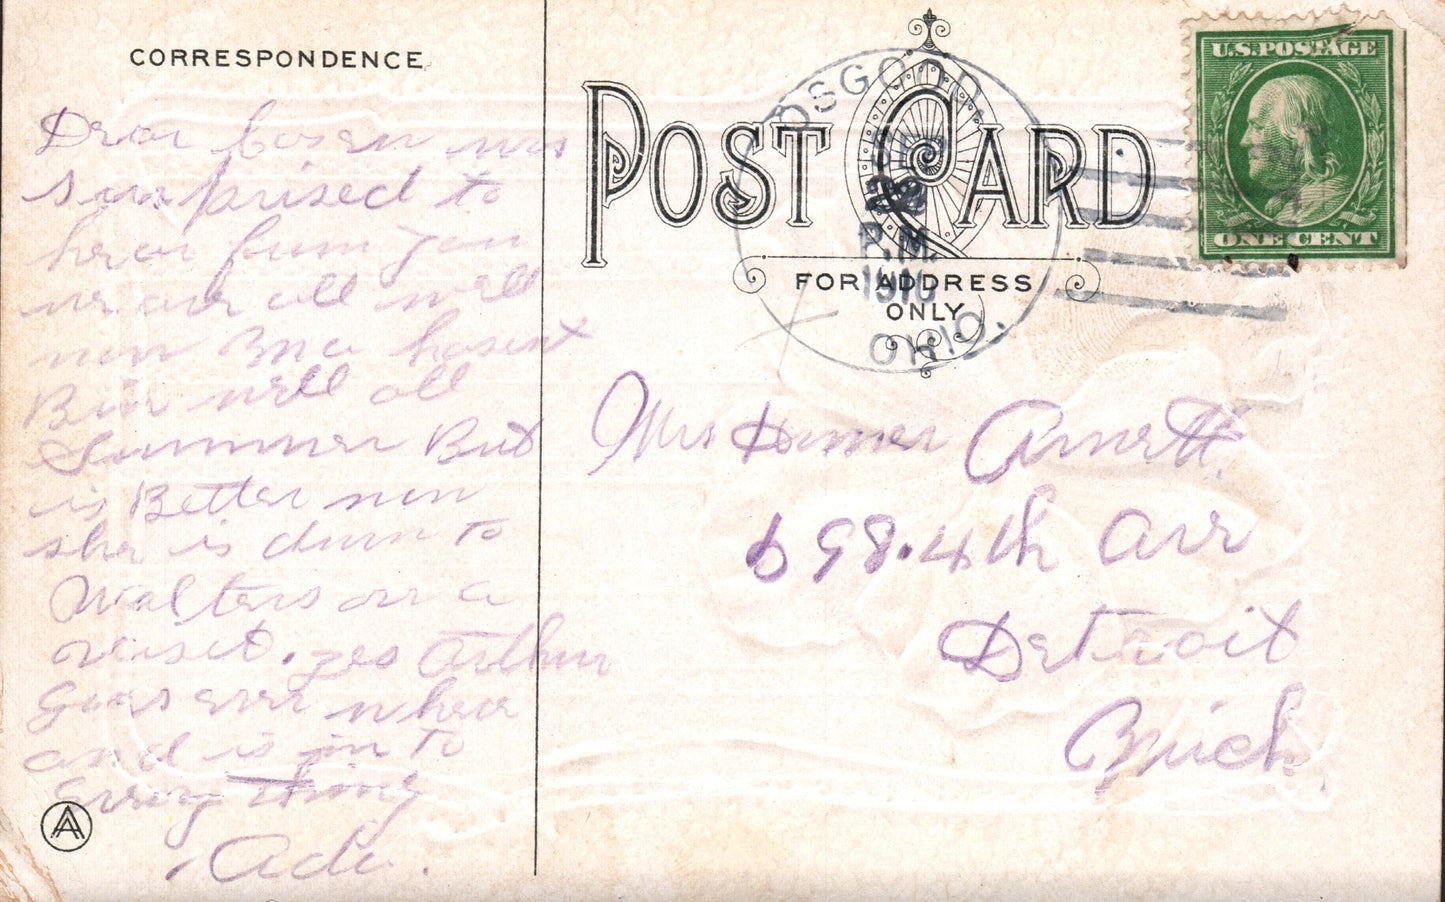 CORRESPONDENCE
Dear Cosen was
surprised to
hear from you
we are all well
now Bnce hasent
Bin well all
Summer But
is Better now
she is down to
Walters on a
visit. yes Arthur
Goes ever where
and is in to
Every thing
Ada.
POST CARD
FOR ADDRESS
ONLY
OSGOOD,
P.M.
1910
OHIO.
U.S.POSTAGE
ONE CENT
Mrs Homer Arnett
698.4th Ave
Detroit
Mich.
A